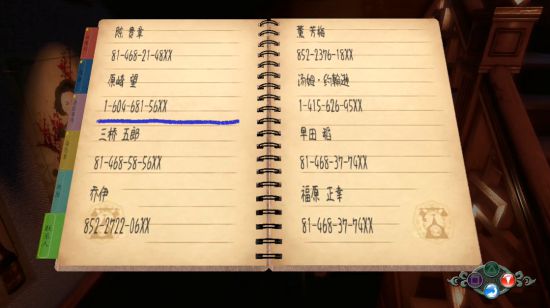 陈 贵章
81-468-21-48XX
原崎 望
1-604-681-56XX
三桥 五朗
81-468-58-56XX
乔伊
852-2722-06XX
董 芳梅
852-2376-18XX
汤姆·约翰逊
1-415-626-95XX
早田 稻
81-468-37-74XX
福原 正幸
81-468-37-74XX
联系人